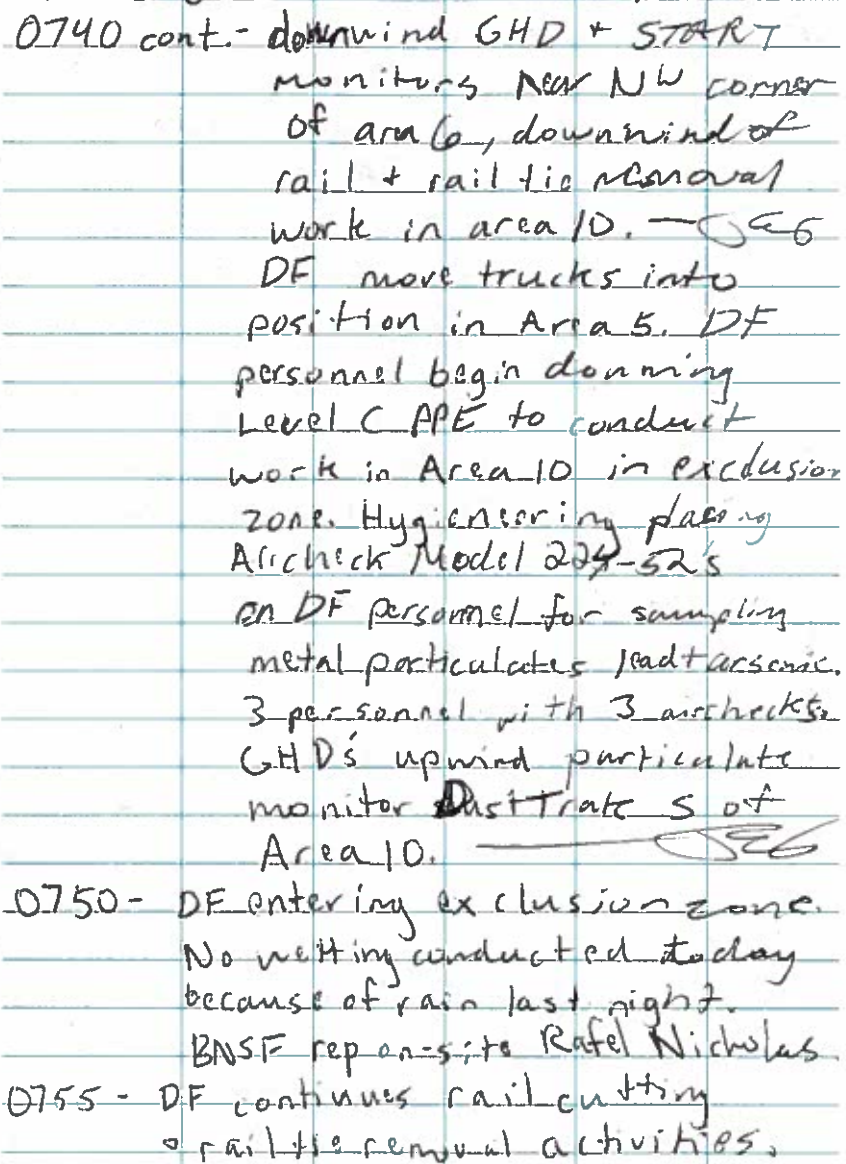 0740 cont. - downwind GHD + START
monitors near NW corner
of area 6, downwind of
rail + rail tie removal
work in area 10. — JGG
DF move trucks into
position in Area 5. DF
personnel begin donning
Level C PPE to conduct
work in Area 10 in excdusion
zone. Hygieneering placing
Aircheck Model 224-52's
on DF personnel for sampling
metal particulates lead + arsenic.
3 personnel with 3 airchecks.
GHD's upwind particulate
monitor DustTrak S of
Area 10. —
0750 - DF entering exclusion zone.
No wetting conducted today
because of rain last night.
BNSF rep on-site Rafel Nicholas.
0755 - DF continues rail cutting
+ rail tie removal activities.